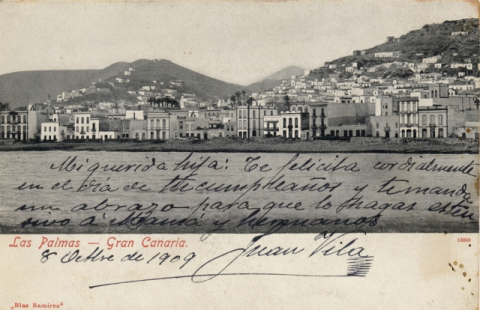 Mi querida hija: Te felicita cordialmente
en el día de tu cumpleaños y te manda
un abrazo para que lo hagas exten
sivo á Mamá y hermanos
Las Palmas — Gran Canaria.
8 Octre de 1909 Juan Vila
„Blas Ramirez“